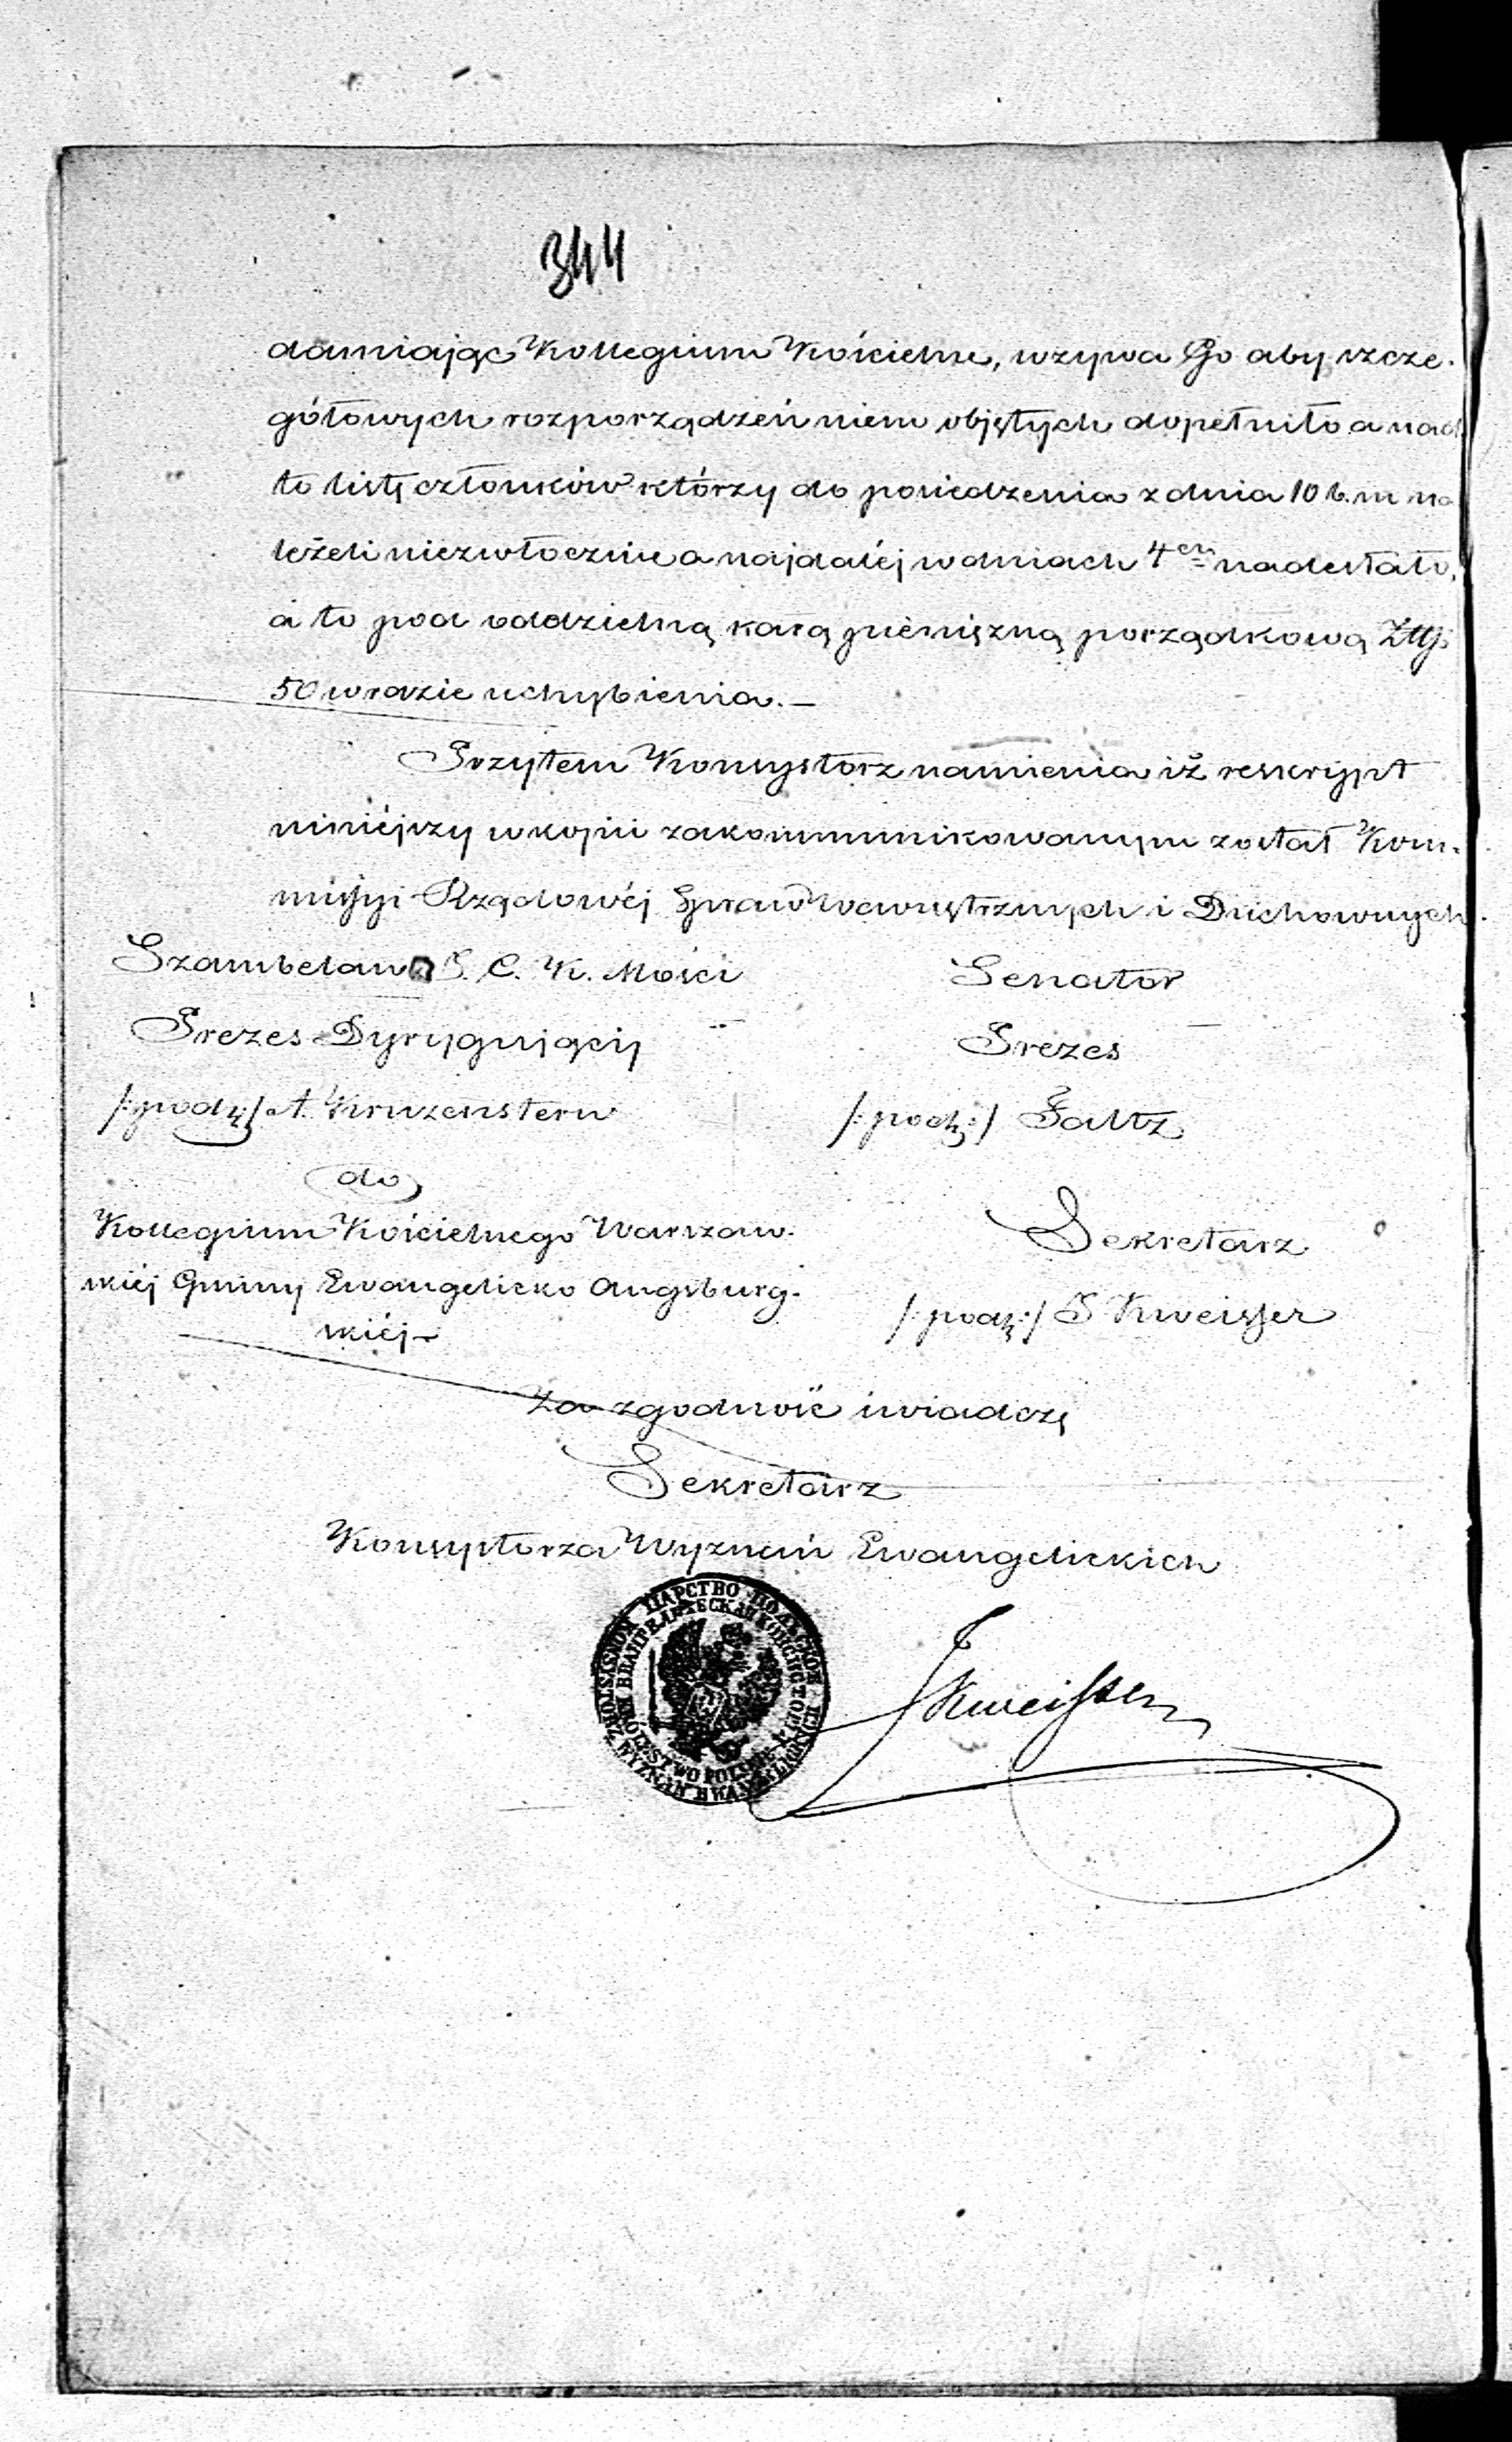 344
damiając Kollegium Kościelne, wzywa Go aby szcze-
gółowych rozporządzeń niem objętych dopełniło a nad
to listę członków którzy do posiedzenia z dnia 10 b. m na
leżeli niezwłocznie a najdaléj w dniach 4ech nadesłało,
a to pod oddzielną karą pieniężną porządkową Złp.
50 w razie uchybienia.—
Przytem Konsystorz namienia iż reskrypt
niniéjszy w kopii zakommunikowanym został Kom-
missyi Rządowéj Spraw Wewnętrznych i Duchownych.
Szambelan J. C. K. Mości
Senator
Prezes Dyrygujący
Prezes
/:podp:/ A. Kruzenstern
/:podp:/ Faltz
do
Kollegium Kościelnego Warszaw-
Sekretarz
skiéj Gminy Ewangelicko Augsburg-
/:podp:/ J Kweisser
skiéj
Za zgodność świadczę
Sekretarz
Konsystorza Wyznań Ewangelickich
ЦАРСТВО ПОЛЬСКОЕ
ЕВАНГЕЛИЧЕСКАЯ КОНСИСТОРІЯ
KRÓLESTWO POLSKIE
KONSYSTORZ WYZNAN EWANGELICKICH
JKweisser